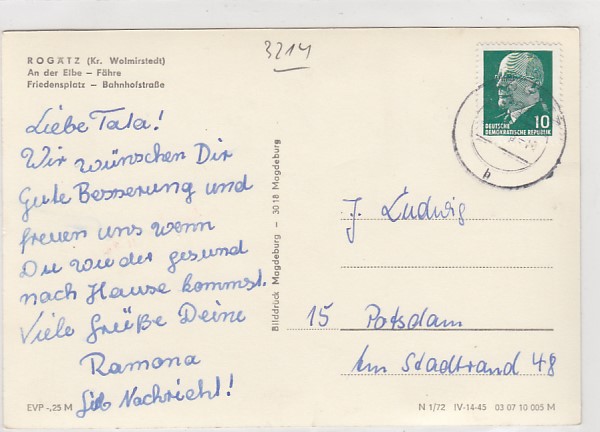 ROGÄTZ (Kr. Wolmirstedt)
An der Elbe – Fähre
Friedensplatz – Bahnhofstraße
3214
10
DEUTSCHE
DEMOKRATISCHE REPUBLIK
h
Liebe Tata!
Wir wünschen Dir
Gute Besserung und
freuen uns wenn
Du wieder gesund
nach Hause kommst.
Viele Grüße Deine
Ramona
Gib Nachricht!
Bilddruck Magdeburg – 3018 Magdeburg
J. Ludwig
15 Potsdam
Am Stadtrand 48
EVP -,25 M
N 1/72 IV-14-45 03 07 10 005 M